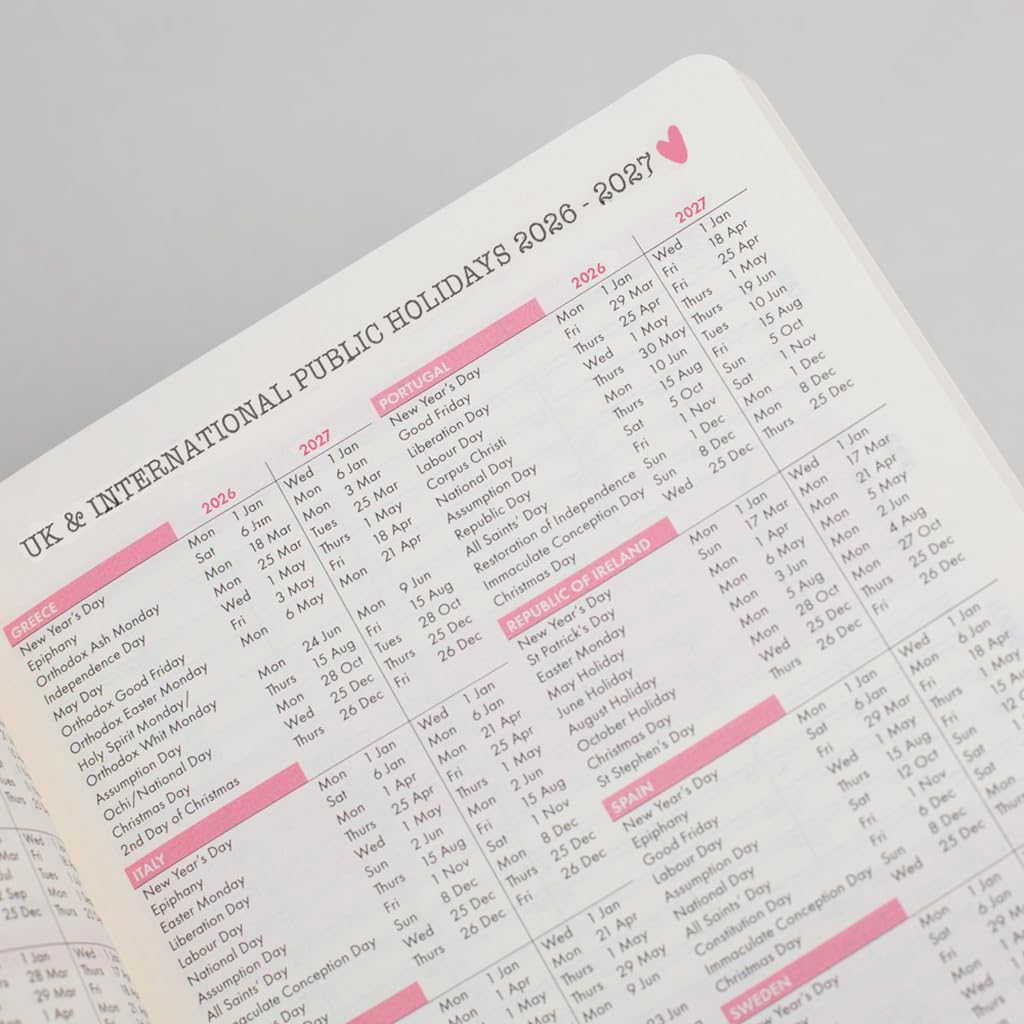 UK & INTERNATIONAL PUBLIC HOLIDAYS 2026 - 2027
GREECE 2026 2027
New Year's Day Mon 1 Jan Wed 1 Jan
Epiphany Sat 6 Jan Mon 6 Jan
Orthodox Ash Monday Mon 18 Mar Mon 3 Mar
Independence Day Mon 25 Mar Tues 25 Mar
May Day Wed 1 May Thurs 1 May
Orthodox Good Friday Fri 3 May Fri 18 Apr
Orthodox Easter Monday Mon 6 May Mon 21 Apr
Holy Spirit Monday/
Orthodox Whit Monday Mon 24 Jun Mon 9 Jun
Assumption Day Thurs 15 Aug Fri 15 Aug
Ochi/National Day Mon 28 Oct Tues 28 Oct
Christmas Day Wed 25 Dec Thurs 25 Dec
2nd Day of Christmas Thurs 26 Dec Fri 26 Dec
ITALY
New Year's Day Mon 1 Jan Wed 1 Jan
Epiphany Sat 6 Jan Mon 6 Jan
Easter Monday Mon 1 Apr Mon 21 Apr
Liberation Day Thurs 25 Apr Fri 25 Apr
Labour Day Wed 1 May Thurs 1 May
National Day Sun 2 Jun Mon 2 Jun
Assumption Day Thurs 15 Aug Fri 15 Aug
All Saints' Day Fri 1 Nov Sat 1 Nov
maculate Conception Day Sun 8 Dec Mon 8 Dec
Wed 25 Dec Thurs 25 Dec
Thurs 26 Dec Fri 26 Dec
Mon 1 Jan Wed 1 Jan
Mon 21 Apr
Thurs 1 May
Thurs 29 May
9 Jun
PORTUGAL 2026 2027
New Year's Day Mon 1 Jan Wed 1 Jan
Good Friday Fri 29 Mar Fri 18 Apr
Liberation Day Thurs 25 Apr Fri 25 Apr
Labour Day Wed 1 May Thurs 1 May
Corpus Christi Thurs 30 May Thurs 19 Jun
National Day Mon 10 Jun Tues 10 Jun
Assumption Day Thurs 15 Aug Fri 15 Aug
Republic Day Sat 5 Oct Sun 5 Oct
All Saints' Day Fri 1 Nov Sat 1 Nov
Restoration of Independence Sun 1 Dec Mon 1 Dec
Immaculate Conception Day Sun 8 Dec Mon 8 Dec
Christmas Day Wed 25 Dec Thurs 25 Dec
REPUBLIC OF IRELAND
New Year's Day Mon 1 Jan Wed 1 Jan
St Patrick's Day Sun 17 Mar Mon 17 Mar
Easter Monday Mon 1 Apr Mon 21 Apr
May Holiday Mon 6 May Mon 5 May
June Holiday Mon 3 Jun Mon 2 Jun
August Holiday Mon 5 Aug Mon 4 Aug
October Holiday Mon 28 Oct Mon 27 Oct
Christmas Day Wed 25 Dec Thurs 25 Dec
St Stephen's Day Thurs 26 Dec Fri 26 Dec
SPAIN
New Year's Day Mon 1 Jan Wed 1 Jan
Epiphany Sat 6 Jan Mon 6 Jan
Good Friday Fri 29 Mar Fri 18 Apr
Labour Day Wed 1 May Thurs 1 May
Assumption Day Thurs 15 Aug Fri 15 Au
National Day Sat 12 Oct Sun 12
All Saints' Day Fri 1 Nov Sat
Constitution Day Fri 6 Dec Sat
Immaculate Conception Day Sun 8 Dec
Christmas Day Wed 25 Dec
SWEDEN
Year's Day Mon 1 Jan
6 Jan
29 M